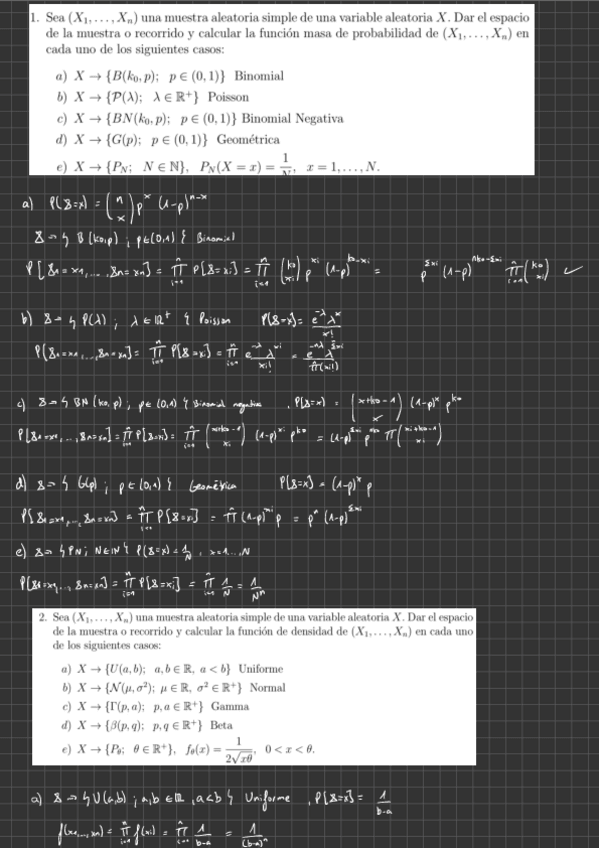 1. Sea (X₁, . . . , Xₙ) una muestra aleatoria simple de una variable aleatoria X. Dar el espacio
de la muestra o recorrido y calcular la función masa de probabilidad de (X₁, . . . , Xₙ) en
cada uno de los siguientes casos:
a) X → {B(k₀, p); p ∈ (0, 1)} Binomial
b) X → {P(λ); λ ∈ ℝ⁺} Poisson
c) X → {BN(k₀, p); p ∈ (0, 1)} Binomial Negativa
d) X → {G(p); p ∈ (0, 1)} Geométrica
e) X → {P_N; N ∈ ℕ}, P_N(X = x) = 1/N, x = 1, . . . , N.
a) P(X=x) = (n x) pˣ (1-p)ⁿ⁻ˣ
X → {B(k₀,p) ; p∈(0,1)} Binomial
P[X₁=x₁, ..., Xₙ=xₙ] = ∏ᵢ₌₁ⁿ P[X=xᵢ] = ∏ᵢ₌₁ⁿ (k₀ xᵢ) p^xᵢ (1-p)^(k₀-xᵢ) = p^Σxᵢ (1-p)^(nk₀-Σxᵢ) ∏ᵢ₌₁ⁿ (k₀ xᵢ) ✓
b) X → {P(λ) ; λ∈ℝ⁺} Poisson P(X=x) = e^-λ λˣ / x!
P(X₁=x₁, ..., Xₙ=xₙ) = ∏ᵢ₌₁ⁿ P[X=xᵢ] = ∏ᵢ₌₁ⁿ e^-λ λ^xᵢ / xᵢ! = e^-nλ λ^Σxᵢ / ∏(xᵢ!)
c) X → {BN(k₀,p) ; p∈(0,1)} Binomial negativa , P[X=x) = (x+k₀-1 x) (1-p)ˣ p^k₀
P[X₁=x₁, ..., Xₙ=xₙ] = ∏ᵢ₌₁ⁿ P[X=xᵢ] = ∏ᵢ₌₁ⁿ (xᵢ+k₀-1 xᵢ) (1-p)^xᵢ p^k₀ = (1-p)^Σxᵢ p^nk₀ ∏ (xᵢ+k₀-1 xᵢ)
d) X → {G(p) ; p∈(0,1)} Geométrica P[X=x] = (1-p)ˣ p
P[X₁=x₁, ..., Xₙ=xₙ] = ∏ᵢ₌₁ⁿ P[X=xᵢ] = ∏ᵢ₌₁ⁿ (1-p)^xᵢ p = pⁿ (1-p)^Σxᵢ
e) X → {P_N ; N∈ℕ} P(X=x) = 1/N , x=1...,N
P[X₁=x₁, ..., Xₙ=xₙ] = ∏ᵢ₌₁ⁿ P[X=xᵢ] = ∏ᵢ₌₁ⁿ 1/N = 1/Nⁿ
2. Sea (X₁, . . . , Xₙ) una muestra aleatoria simple de una variable aleatoria X. Dar el espacio
de la muestra o recorrido y calcular la función de densidad de (X₁, . . . , Xₙ) en cada uno
de los siguientes casos:
a) X → {U(a, b); a, b ∈ ℝ, a < b} Uniforme
b) X → {N(μ, σ²); μ ∈ ℝ, σ² ∈ ℝ⁺} Normal
c) X → {Γ(p, a); p, a ∈ ℝ⁺} Gamma
d) X → {β(p, q); p, q ∈ ℝ⁺} Beta
e) X → {P_θ; θ ∈ ℝ⁺}, f_θ(x) = 1/(2√xθ), 0 < x < θ.
a) X → {U(a,b) ; a,b∈ℝ , a<b} Uniforme , P[X=x] = 1/(b-a)
f(x₁,...,xₙ) = ∏ᵢ₌₁ⁿ f(xᵢ) = ∏ᵢ₌₁ⁿ 1/(b-a) = 1/(b-a)ⁿ